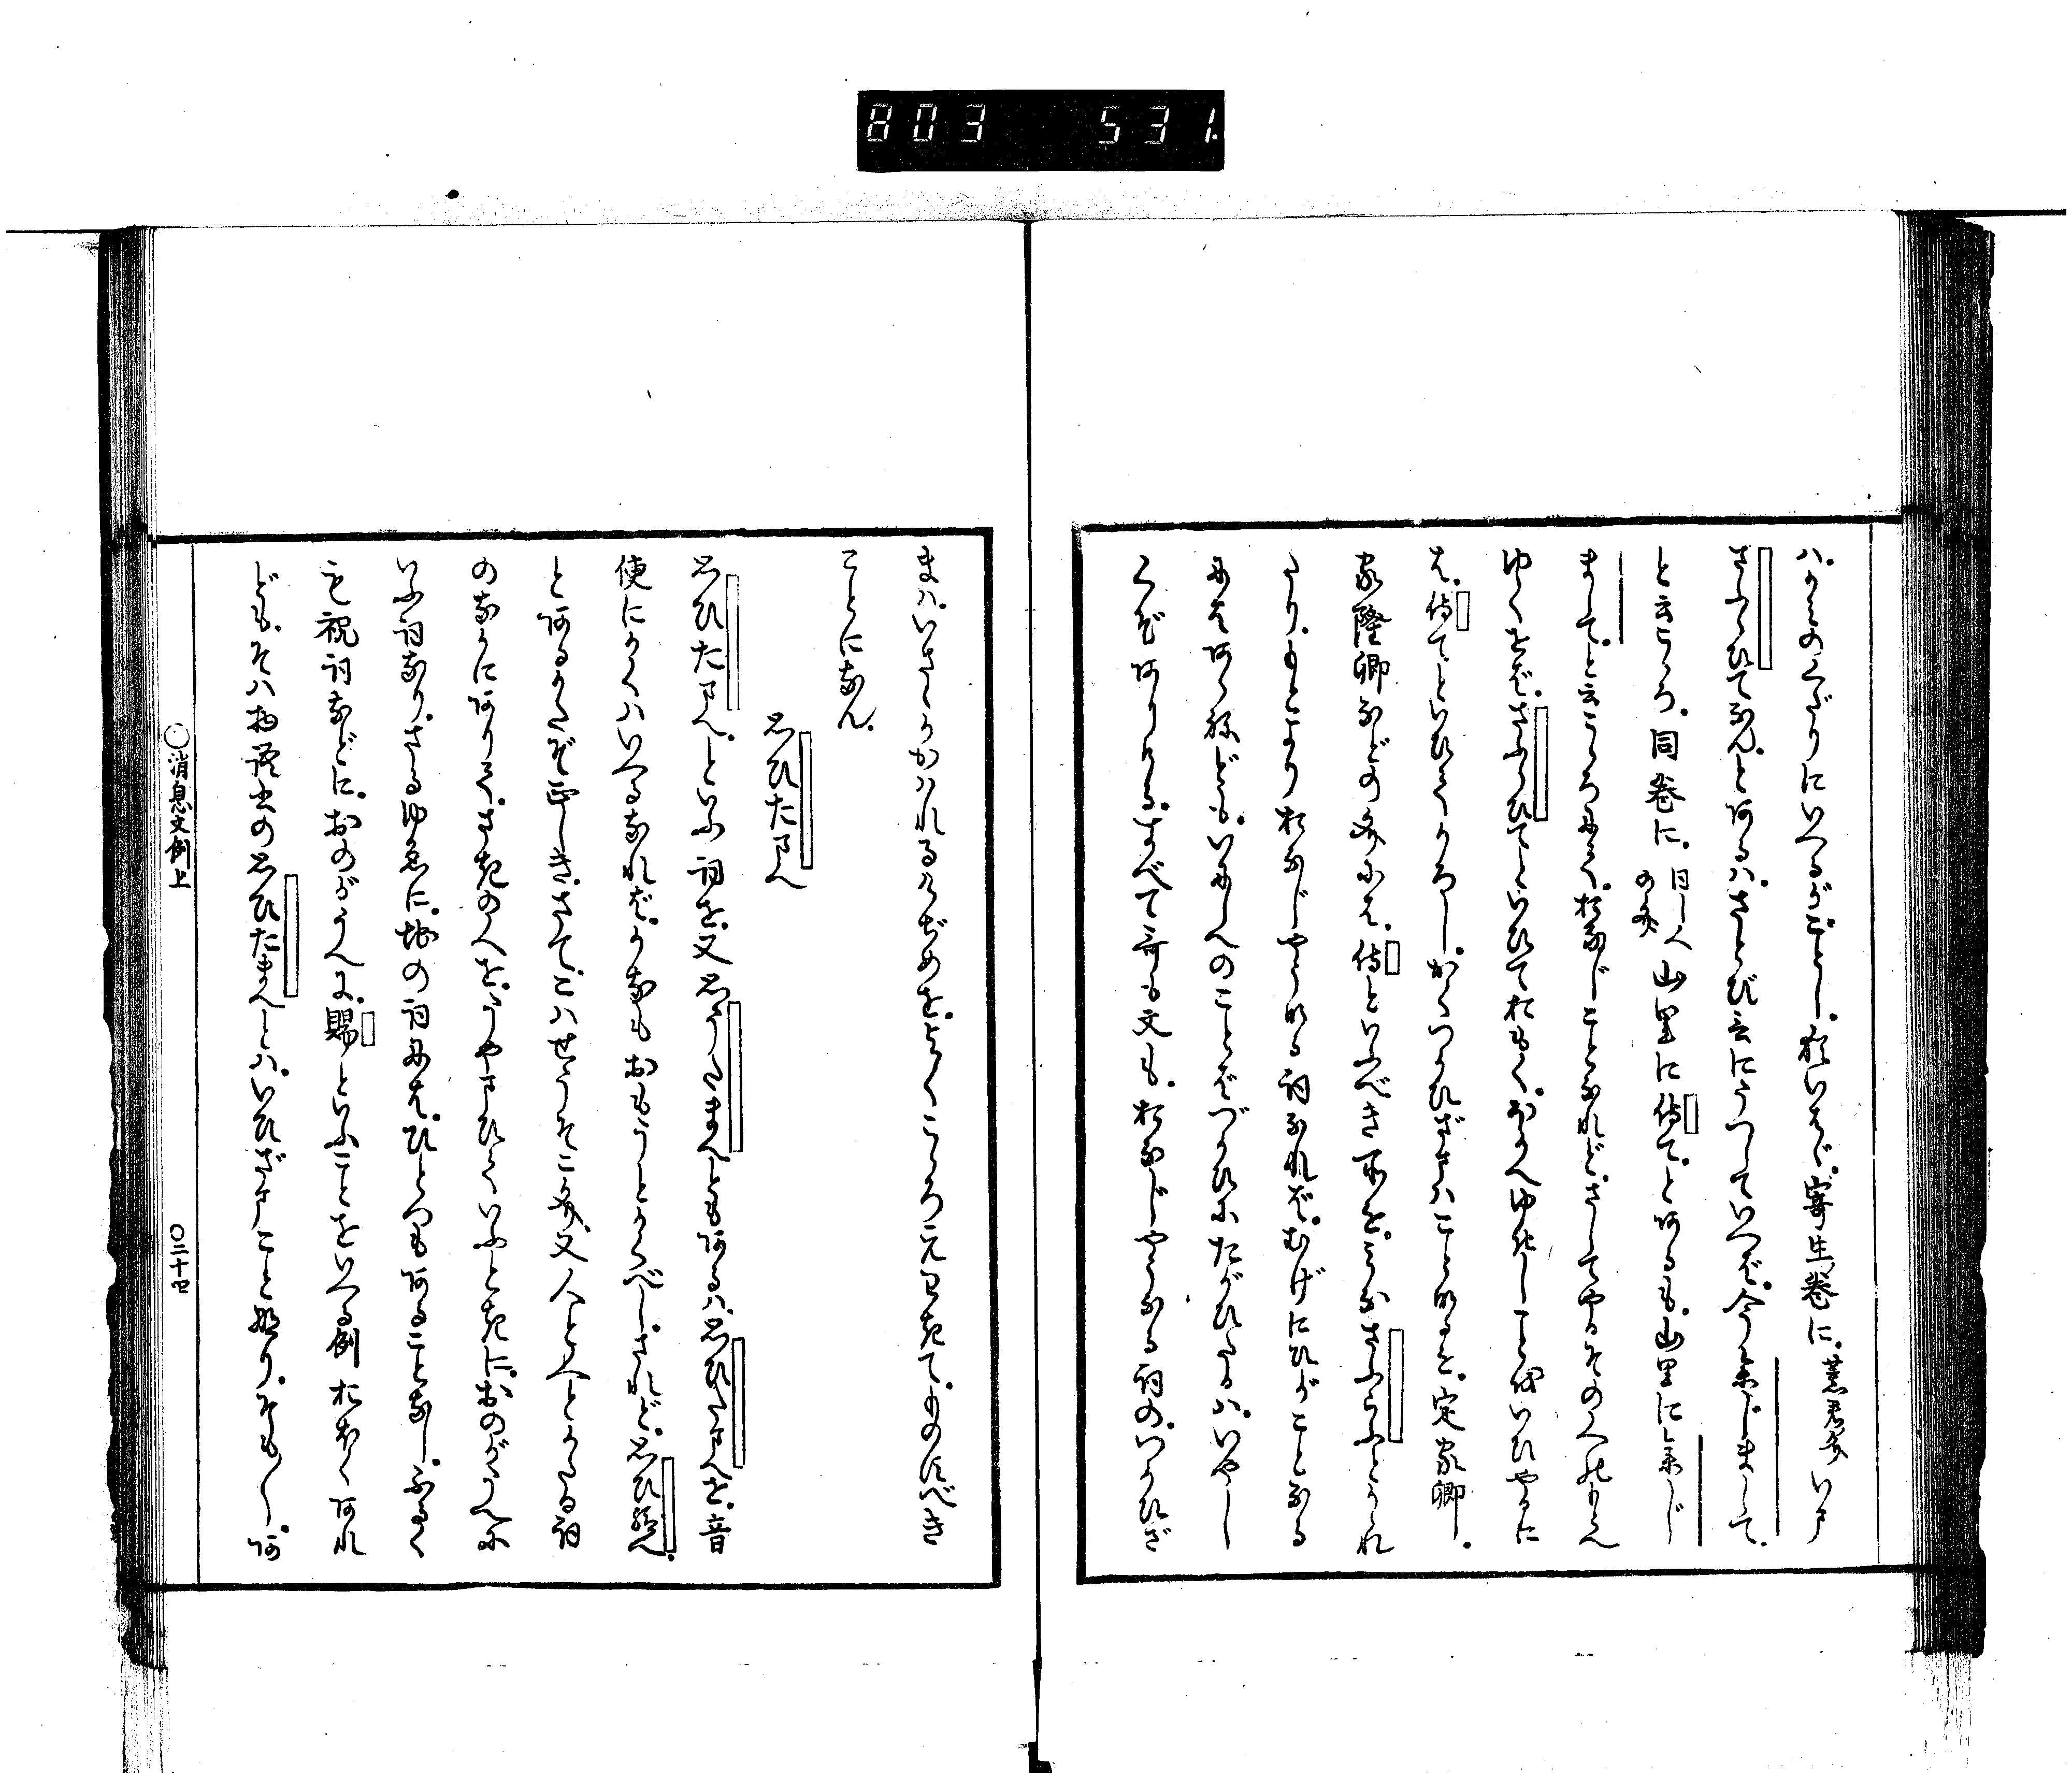 803 531
ハ。かミのくだりにいへるがごとし。猶いはゞ。寄生巻に。薫君文いま
さふらひてなん。とあるハ。さとび言にうつしていへば。今参じまして。
と云こゝろ。同巻に。同じ人の文山里に侍て。とあるも。山里に参じ
まして。と云こゝろにて。おなじことなれど。さしてやるその人のもとへ
ゆくをば。さふらひてといひておもく。
は。侍てといひてかろし。かくつかひざまハことなるを。定家卿。
家隆卿などの文には。侍といふべき所を。さふらふとかかれ
たり。もとより おなじやうなる詞なれば。むげにひがことなる
にはあらねども。いにしへのことばづかひにたがひたるハ。いやし
くぞありける。すべて哥も文も。おなじやうなる詞の。いひざ
まハ。いさゝかかハれるけぢめを。よくこゝろえわきて。ものすべき
ことになん。
思ひたまへ
思ひたまへ。といふ詞を。又思うたまへともあるハ。思ひたまへを。音
便にかくハいへるなれば。かなもおもうとかくべし。されど。思ひ給へ。
とあるかたぞ正しき。さて。こハせうそこ文。又人と人とかたる詞
の中にありて。さきの人を。うやまひていふときに。おのがうへに
いふ詞なり。さるゆゑに。地の詞にはひとつもあることなし。ふるく
も祝詞などに。おのがうへに。賜といふことをいへる例おほくあれ
ども。そハ物語書の思ひたまへとハ。いひざまことなり。そも〱。あ
〇消息文例上
〇二十四